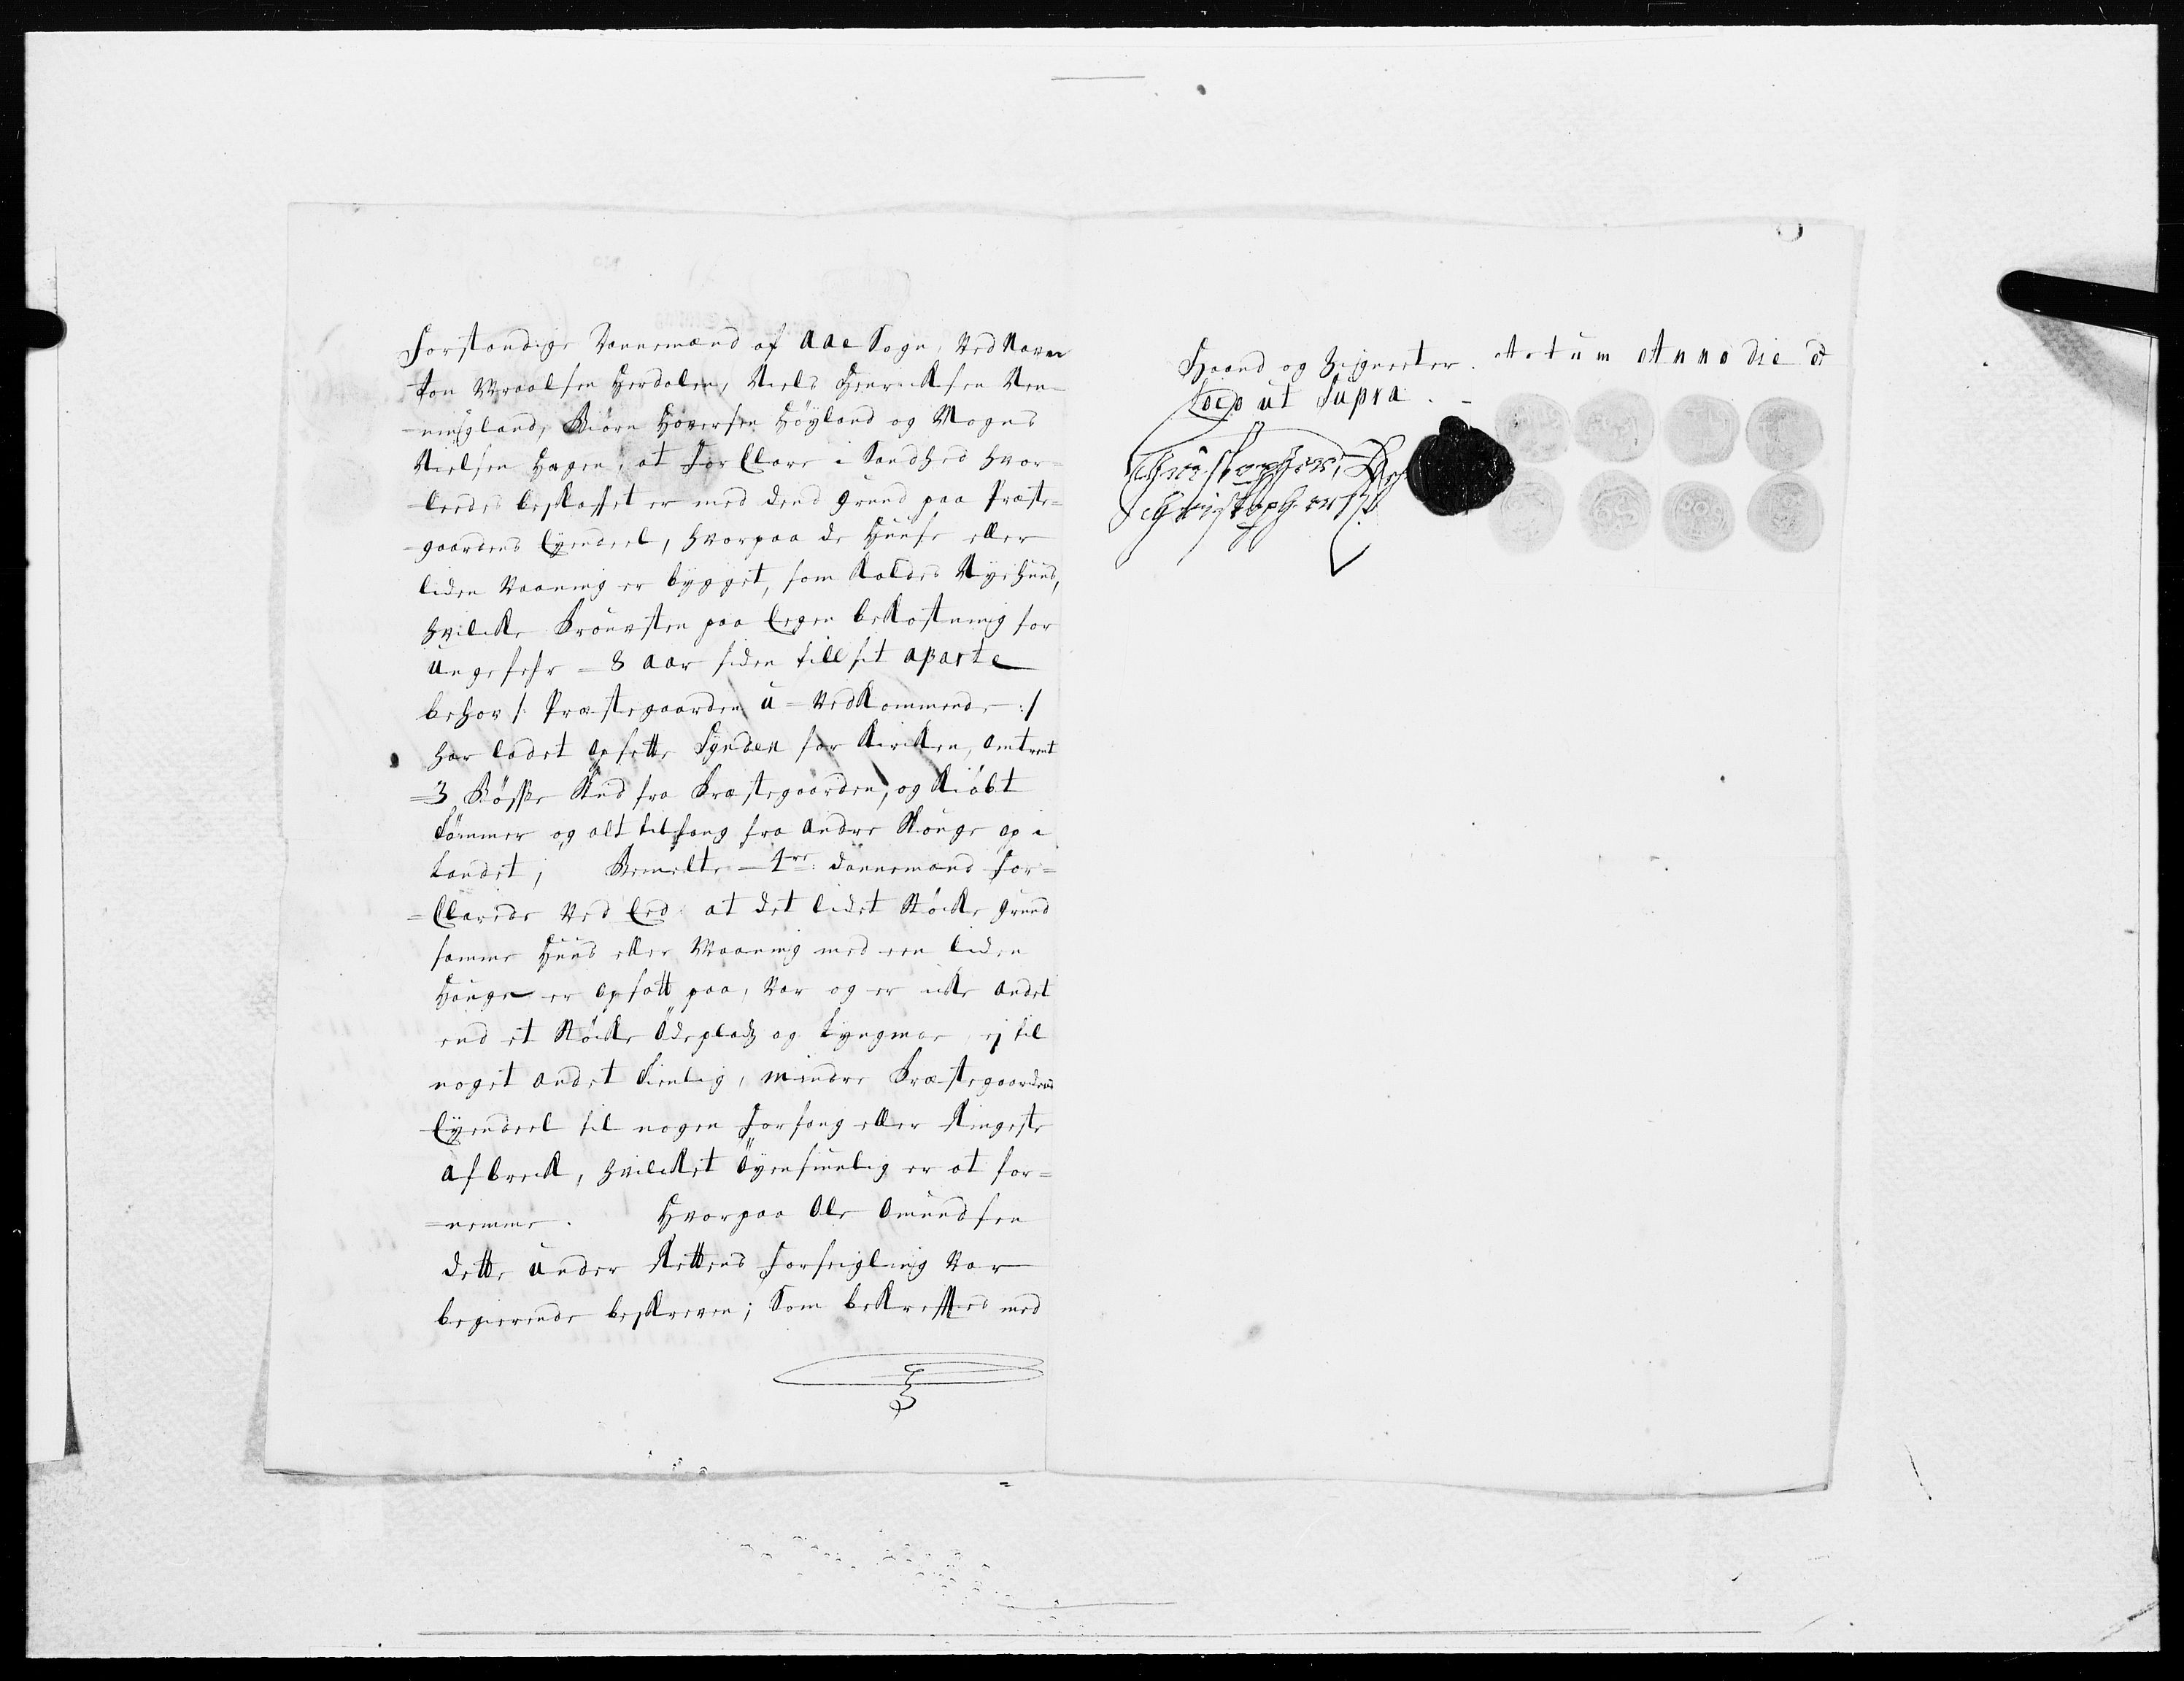 Forstandige Dannemænd af Aae Sogn, Ved Navn
Jon Wraalsen Herdalen, Niels Henricksen Ven=
=nisgland, Biørn Haversen Høyland og Mogns
Nielsen Hagen, at ForClare i Sandhed hvor=
=leedes beskaffet er med dend Grund paa Præste=
=gaardens Eyendeel, hvorpaa de Huuse eller
liden Vaaning er bygget, som Kaldes Nyehuus,
hvilcke Prousten paa Eegen bekostning for
ungefehr = 8 aar siden till sit aparte
behov /: Præstegaarden u=Vedkommende :/
har ladet opsette Synden for Kircken, omtrent
=3 Bøsse Skud fra Præstegaarden, og Kiøbt
Tømmer og alt tilfang fra andre Skouge op i
Landet; Bemelte =4re Dannemænd For=
=Clarede Ved Eed at det lidet Støcke Grund
samme Huus eller Waaning med een liden
Hauge er opsatt paa, Var og er icke andet
end et Støcke Ødeplads og Lyngmoe, ej til
noget andet tienlig, mindre Præstegaardens
Eyendeel til nogen Forfang eller Ringeste
afbreck, hvilcket Øyensiunlig er at for=
=nemme. Hvorpaa Ole Omundsen
dette under Rettens Forseigling Var
begierende beskreven; Som bekreftes med
Haand og Zigneter. Actum Anno die et
Loco ut Supra. -
Christopher
Christophersen